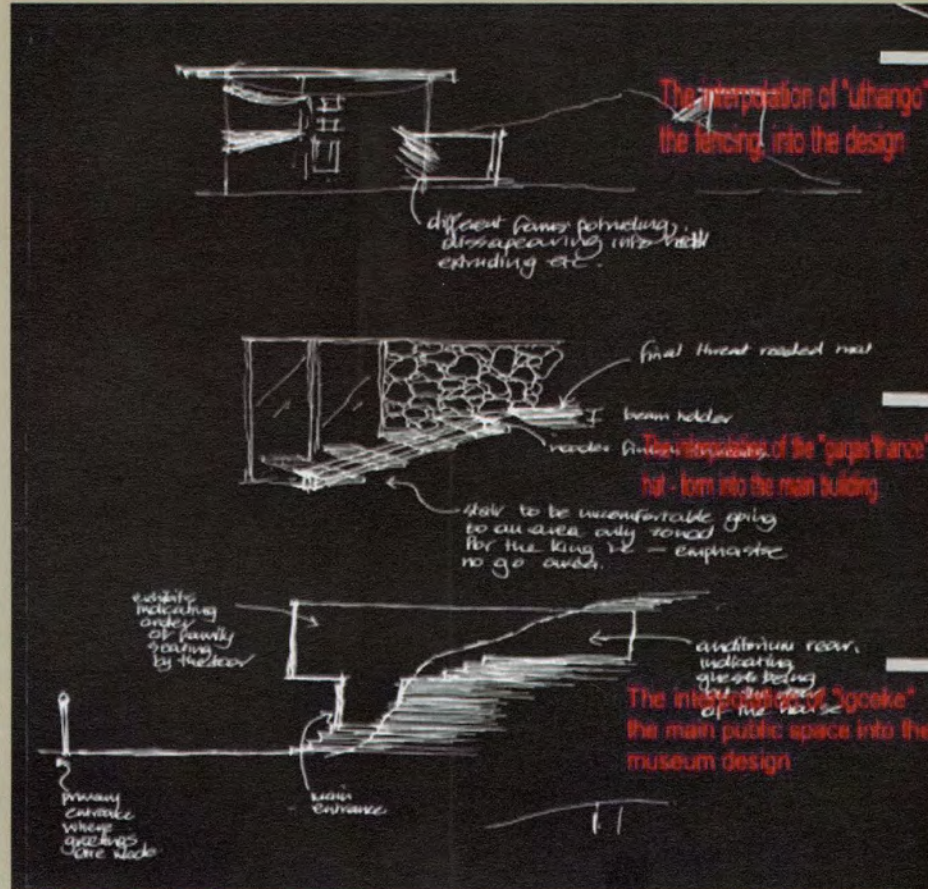 The interpolation of "uthango"
the fencing, into the design
different forms potruding,
dissapearing into
extruding etc.
final threat readed mat
beam holder
The interpolation of the "gagas'thanze"
hut - form into the main building
stair to be uncomfortable going
to an area only zoned
for the king ie - emphasise
no go area.
exhibits
indicating
order
of family
seating
by the door
auditorium rear,
indicating
guests being
at the rear
of the house
The interpolation of "Igceke"
the main public space into the
museum design
primary
entrance
where
greetings
are made
main
entrance